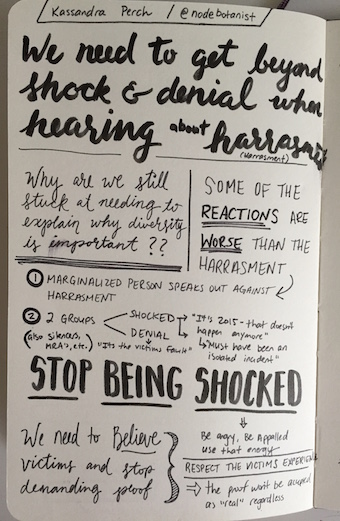 Kassandra Perch / @nodebotanist
We need to get beyond
shock & denial when
hearing about harrasment
(Harrasment)
Why are we still
stuck at needing to
explain why diversity
is important??
SOME OF THE
REACTIONS ARE
WORSE THAN THE
HARRASMENT
① MARGINALIZED PERSON SPEAKS OUT AGAINST
HARRASMENT
② 2 GROUPS
(also silences,
MRA's, etc.)
SHOCKED → "It's 2015 - that doesn't
happen anymore"
↳ "Must have been an
isolated incident"
DENIAL
"Its the victims fault"
STOP BEING SHOCKED
We need to Believe
victims and stop
demanding proof
Be angry, Be Appalled
use that energy
RESPECT THE VICTIMS EXPERIENCE
⇒ the proof won't be accepted
as "real" regardless